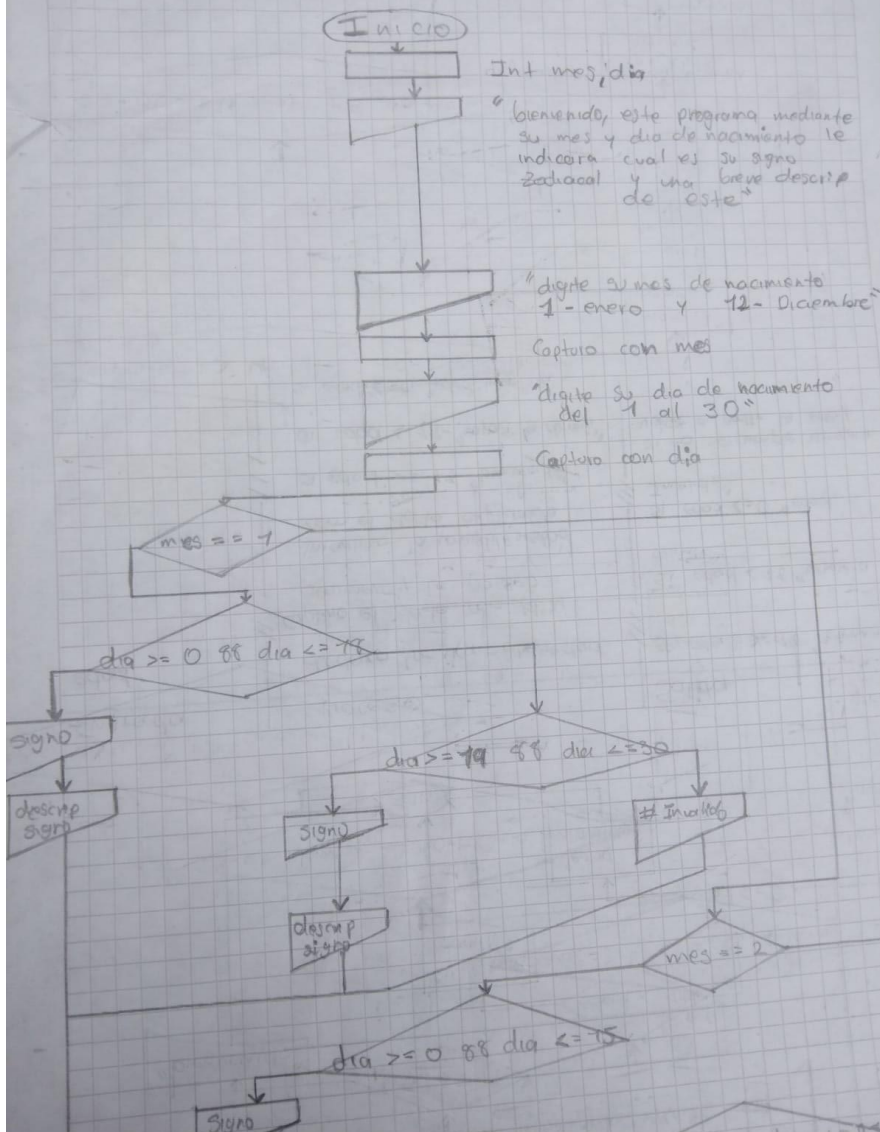 Inicio
Int mes, dia
"bienvenido, este programa mediante
su mes y dia de nacimiento le
indicara cual es su signo
Zodiacal y una breve descrip
de este"
"digite su mes de nacimiento
1 - enero y 12 - Diciembre"
Capturo con mes
"digite su dia de nacimiento
del 1 al 30"
Capturo con dia
mes == 1
dia >= 0 && dia <= 18
signo
descrip
signo
dia >= 19 && dia <= 30
signo
# Invalido
descrip
signo
mes == 2
dia >= 0 && dia <= 15
Signo